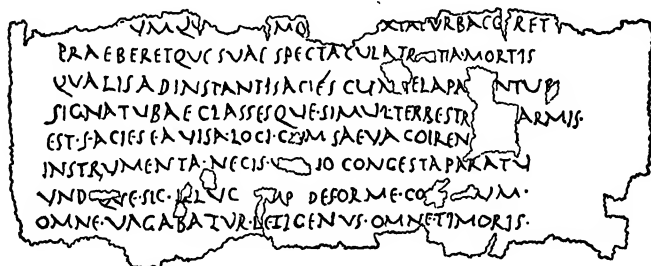 UMQU MO XTATURBACO RET
PRAEBERETQUE SUAE SPECTACULA TR TIA·MORTIS
QUALIS AD INSTANTIS ACIÉS CUM TELA PA NTUR
SIGNA TUBAE CLASSESQUE·SIMUL·TERRESTR ARMIS·
EST·FACIES EA VISA·LOCI·CUM SAEVA COIREN
INSTRUMENTA·NECIS·V IO CONGESTA PARATU
UND QUE·SIC·ILLUC AP DEFORME·CO UM·
OMNE·VAGABATUR·LETI GENUS·OMNE TIMORIS·